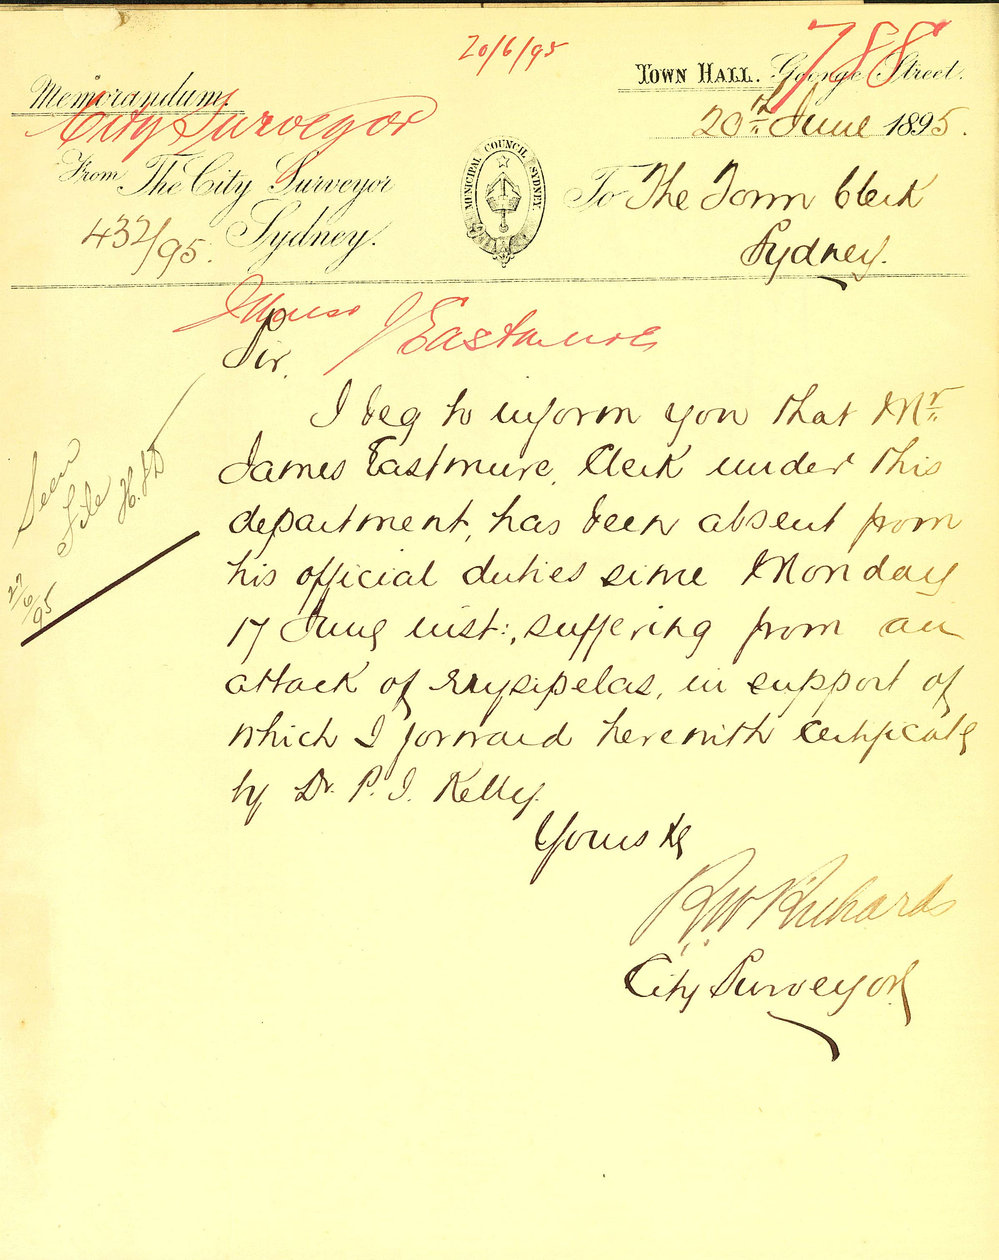 20/6/95
788
TOWN HALL. George Street.
Memorandum.
City Surveyor
20th June 1895.
From The City Surveyor
Sydney.
432/95.
MUNICIPAL COUNCIL SYDNEY
To The Town Clerk
Sydney.
Illness J Eastmure
Sir,
I beg to inform you that Mr
James Eastmure, Clerk under this
department, has been absent from
his official duties since Monday
17 June inst:, suffering from an
attack of erysipelas, in support of
which I forward herewith certificate
by Dr. P. J. Kelly.
Yours &c
R W Richards
City Surveyor
Seen
File
27/6/95